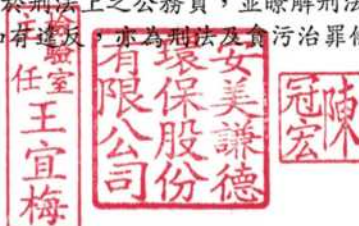 於刑法上之公務員，並瞭解刑法
如有違反，亦為刑法及貪污治罪條
檢驗室
主任
王宜梅
安美謙德
環保股份
有限公司
陳
冠宏